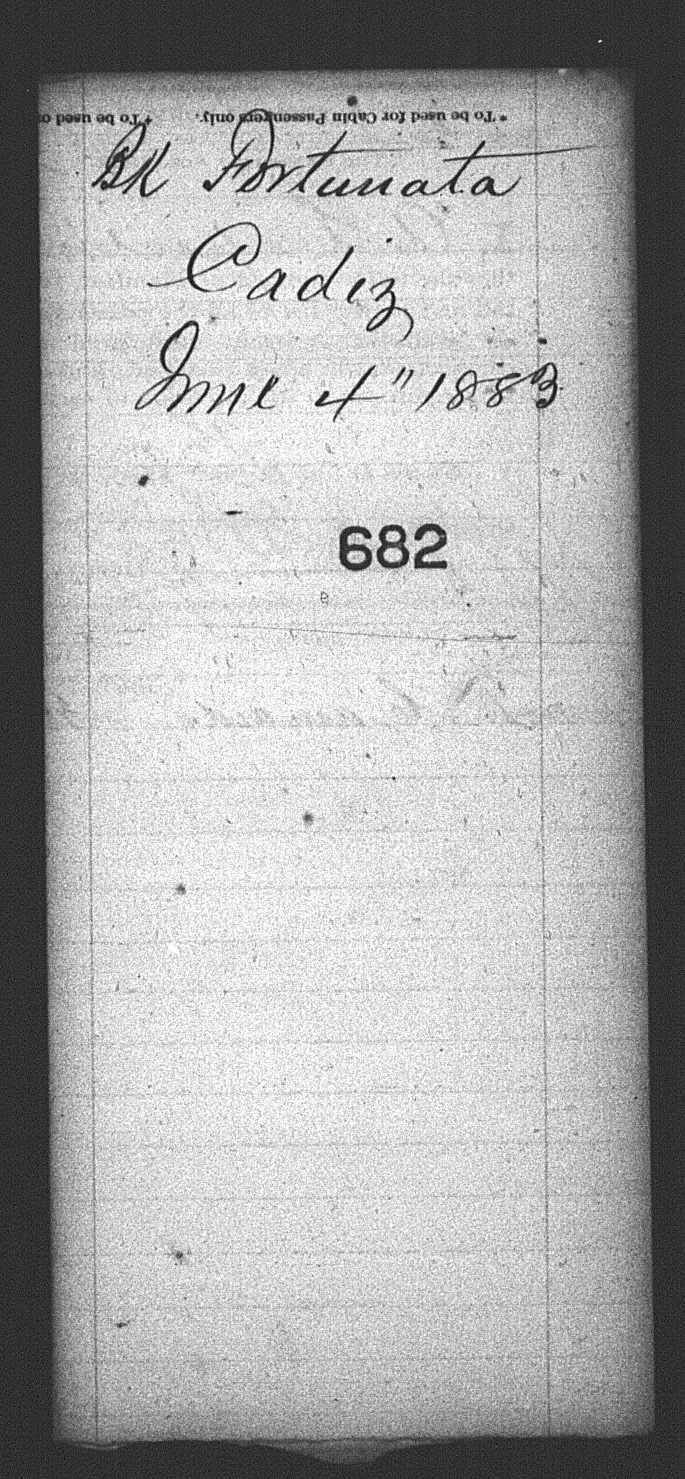 *To be used for Cabin Passengers only. †To be used
Bk Fortunata
Cadiz
June 4" 1883
682